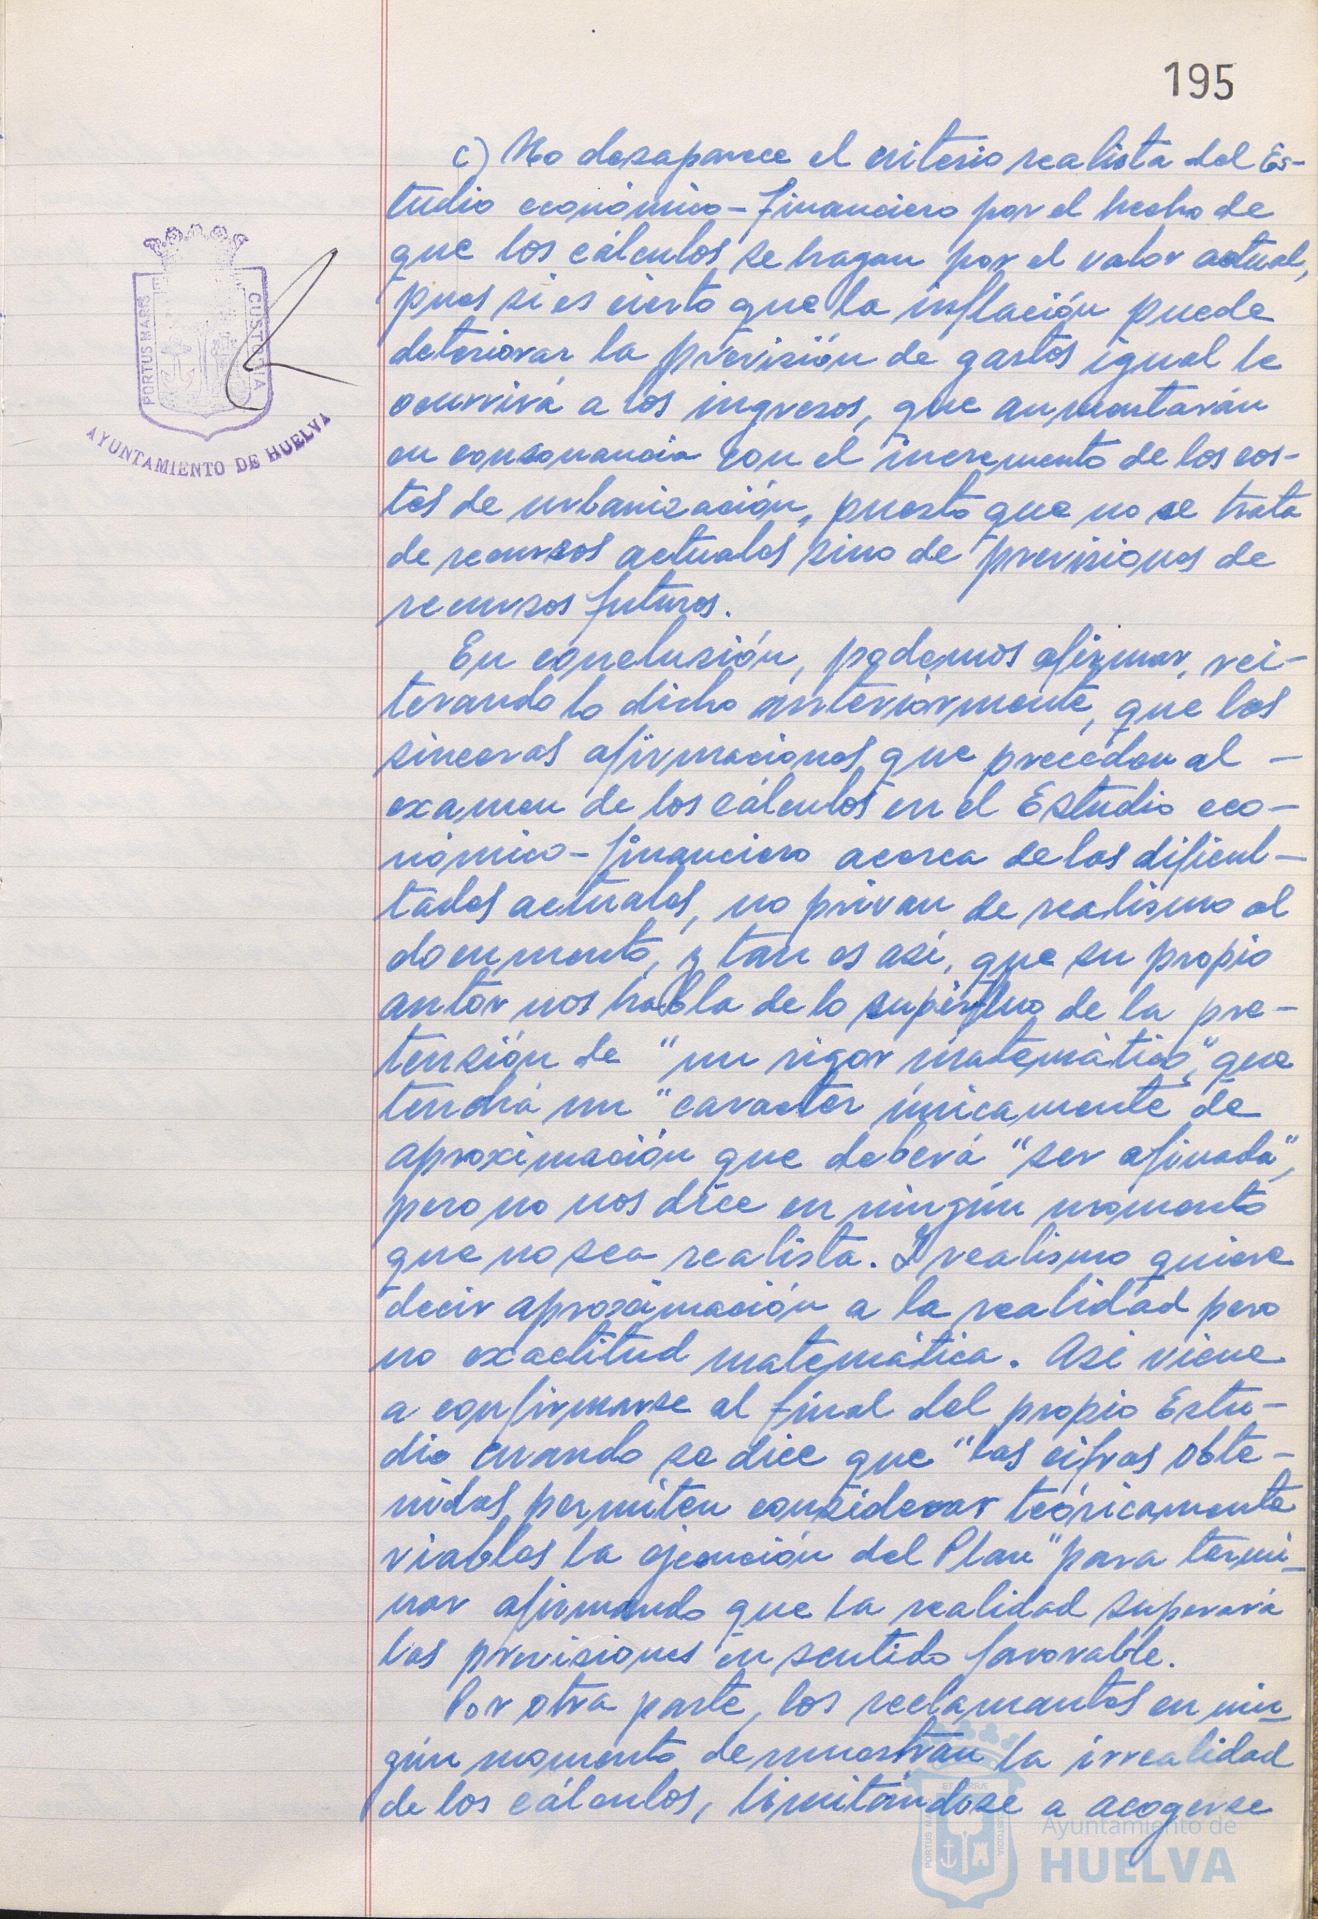 195
c) No desaparece el criterio realista del Es-
tudio económico-financiero por el hecho de
que los cálculos se hagan por el valor actual,
pues si es cierto que la inflación puede
deteriorar la previsión de gastos igual le
ocurrirá a los ingresos, que aumentarán
en consonancia con el incremento de los cos-
tes de urbanización, puesto que no se trata
de recursos actuales sino de previsiones de
recursos futuros.
En conclusión, podemos afirmar, rei-
terando lo dicho anteriormente, que las
sinceras afirmaciones que preceden al -
examen de los cálculos en el Estudio eco-
nómico-financiero acerca de las dificul-
tades actuales, no privan de realismo al
documento, y tan es así, que su propio
autor nos habla de lo superfluo de la pre-
tensión de "un rigor matemático", que
tendrá un "caracter únicamente de
aproximación que deberá "ser afinada",
pero no nos dice en ningún momento
que no sea realista. Y realismo quiere
decir aproximación a la realidad pero
no exactitud matemática. Así viene
a confirmarse al final del propio Estu-
dio cuando se dice que "las cifras obte-
nidas permiten considerar teóricamente
viables la ejecución del Plan" para termi-
nar afirmando que la realidad superará
las previsiones en sentido favorable.
Por otra parte, los reclamantes en nin-
gún momento demuestran la irrealidad
de los cálculos, limitándose a acogerse
PORTUS MARIS
CUSTODIA
AYUNTAMIENTO DE HUELVA
Ayuntamiento de
HUELVA